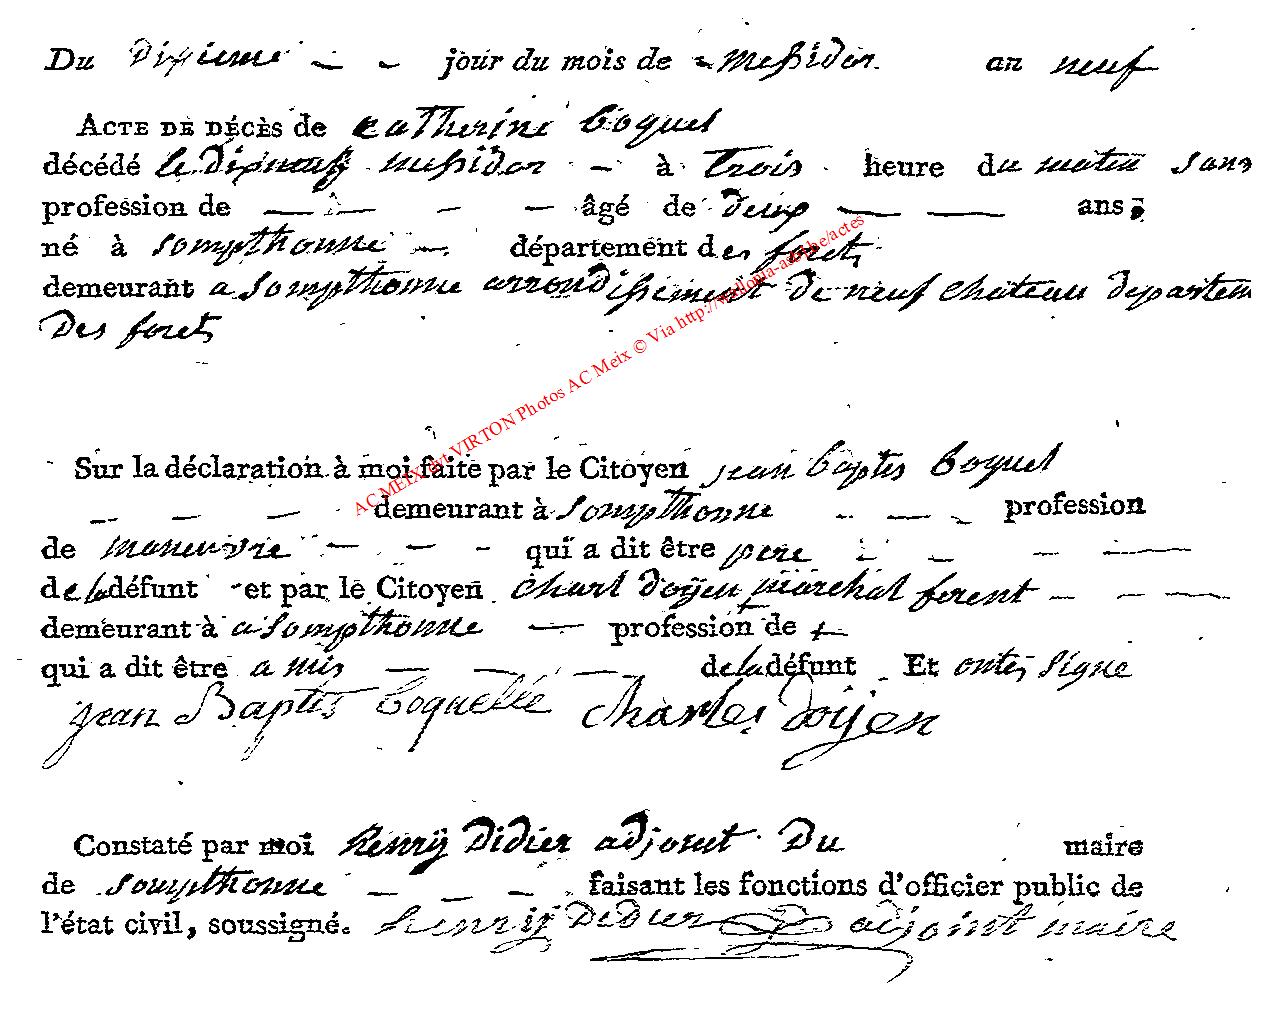 Du dixieme jour du mois de messidor an neuf
ACTE DE DÉCÈS de Catherine Coquel
décédé le dixneuf messidor à trois heure du matin sans
profession de âgé de deux ans,
né à sompthonne département des forets
demeurant a sompthonne arrondissement de neuf chateau departem
Des forets
Sur la déclaration à moi faite par le Citoyen jean baptis Coquel
demeurant à sompthonne profession
de maneuvre qui a dit être pere
de la défunt et par le Citoyen charl doijen marechal ferent
demeurant à a sompthonne profession de
qui a dit être a mis de la défunt Et ontes signe
jean Baptis Coquelle Charles Doijen
Constaté par moi henrij Didier adjoint Du maire
de sompthonne faisant les fonctions d'officier public de
l'état civil, soussigné. henrij Didier adjoint maire
AC MEIX dvt VIRTON Photos AC Meix © Via http://wallonia-asbl.be/actes